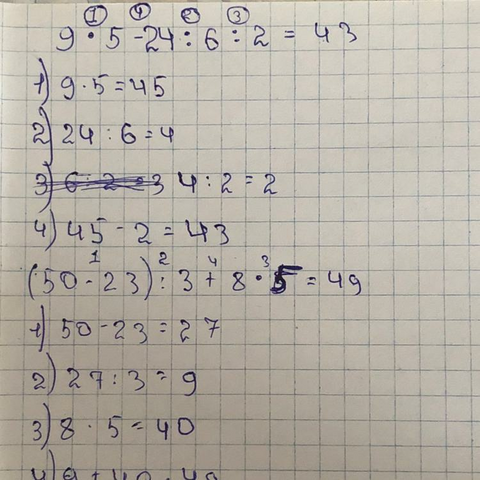 1 4 2 3
9 · 5 - 24 : 6 : 2 = 43
1) 9 · 5 = 45
2) 24 : 6 = 4
3) 6 : 2 = 3 4 : 2 = 2
4) 45 - 2 = 43
1 2 4 3
(50 - 23) : 3 + 8 · 5 = 49
1) 50 - 23 = 27
2) 27 : 3 = 9
3) 8 · 5 = 40
4) 9 + 40 = 49